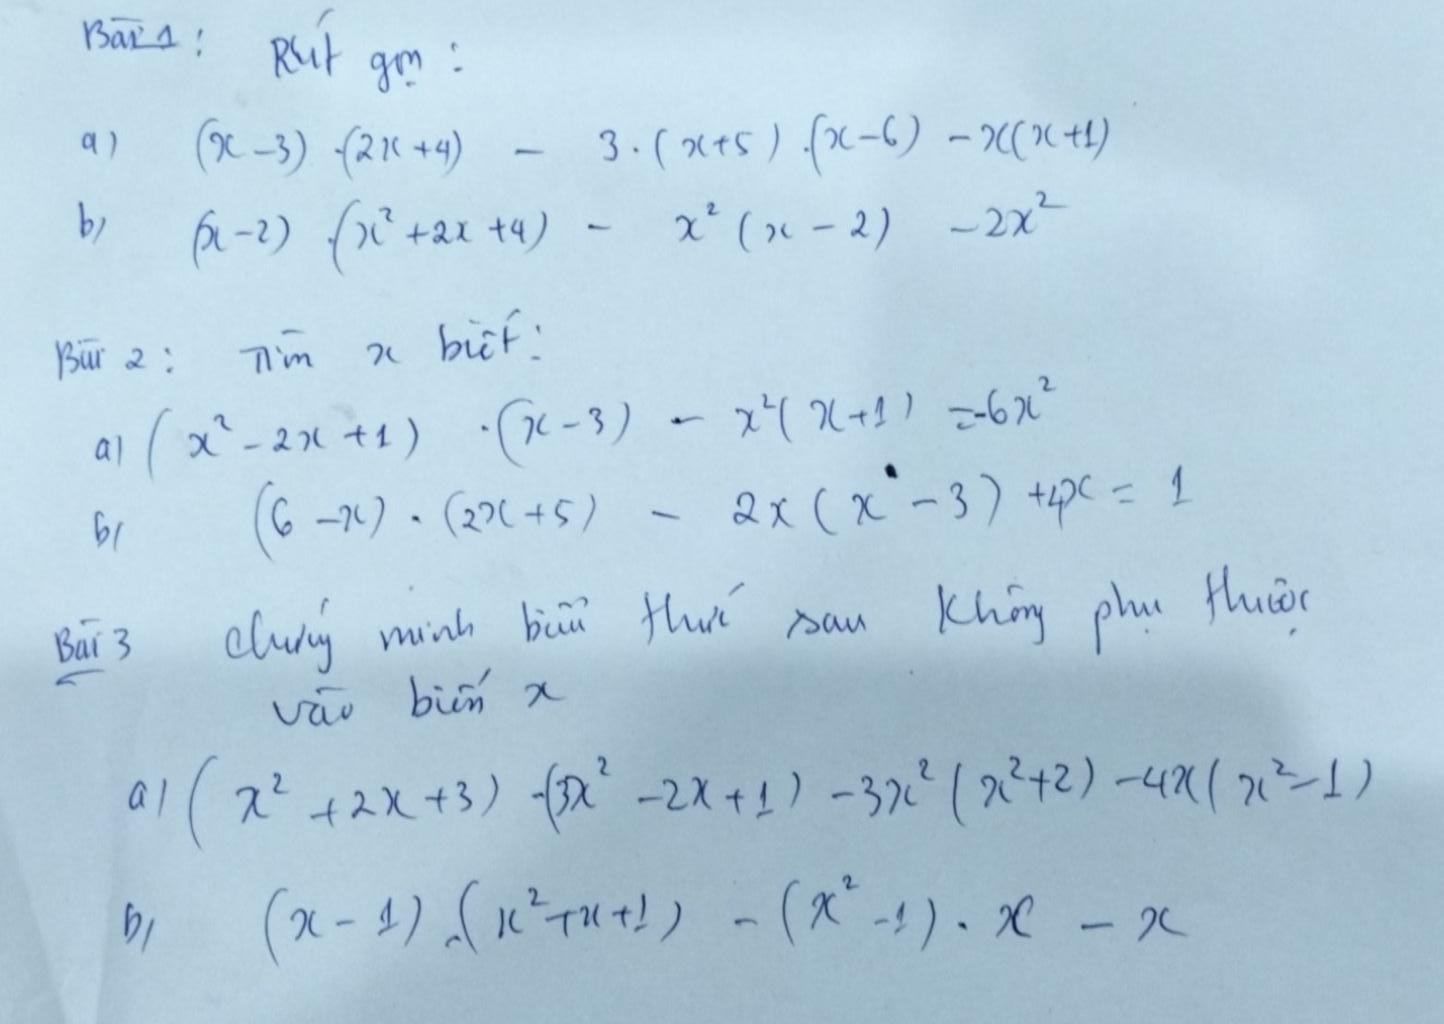 Bài 1: Rút gọn:
a) (x-3).(2x+4) - 3.(x+5).(x-6) - x(x+1)
b) (x-2).(x²+2x+4) - x²(x-2) - 2x²
Bài 2: Tìm x biết:
a) (x²-2x+1).(x-3) - x²(x+1) = -6x²
b) (6-x).(2x+5) - 2x(x-3) + 4x = 1
Bài 3 chứng minh biểu thức sau không phụ thuộc
vào biến x
a) (x²+2x+3).(3x²-2x+1) - 3x²(x²+2) - 4x(x²-1)
b) (x-1).(x²+x+1) - (x²-1).x - x